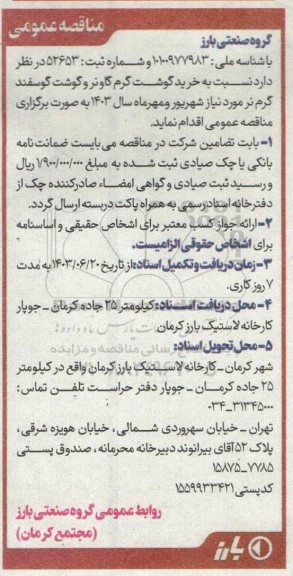 مناقصه عمومی
گروه صنعتی بارز
با شناسه ملی : ۱۰۱۰۰۹۷۷۹۸۳ و شماره ثبت : ۵۲۶۵۳ در نظر
دارد نسبت به خرید گوشت گرم گاو نر و گوشت گوسفند
گرم نر مورد نیاز شهریور و مهرماه سال ۱۴۰۳ به صورت برگزاری
مناقصه عمومی اقدام نماید.
۱- بابت تضامین شرکت در مناقصه می بایست ضمانت نامه
بانکی یا چک صیادی ثبت شده به مبلغ ۷۹۰۰/۰۰۰/۰۰۰ ریال
و رسید ثبت صیادی و گواهی امضاء صادرکننده چک از
دفترخانه اسناد رسمی به همراه پاکت دربسته ارسال گردد.
۲- ارائه جواز کسب معتبر برای اشخاص حقیقی و اساسنامه
برای اشخاص حقوقی الزامیست.
۳- زمان دریافت و تکمیل اسناد: از تاریخ ۱۴۰۳/۰۶/۲۰ به مدت
۷ روز کاری.
۴- محل دریافت اسناد: کیلومتر ۲۵ جاده کرمان - جوپار
کارخانه لاستیک بارز کرمان
۵- محل تحویل اسناد:
شهر کرمان - کارخانه لاستیک بارز کرمان واقع در کیلومتر
۲۵ جاده کرمان - جوپار دفتر حراست تلفن تماس:
۰۳۴-۳۱۳۴۵۰۰۰
تهران - خیابان سهروردی شمالی، خیابان هویزه شرقی،
پلاک ۵۲ آقای بیرانوند دبیرخانه محرمانه، صندوق پستی
۱۵۸۷۵-۷۷۸۵
کدپستی ۱۵۵۹۹۳۳۴۲۱
روابط عمومی گروه صنعتی بارز
(مجتمع کرمان)
بارز